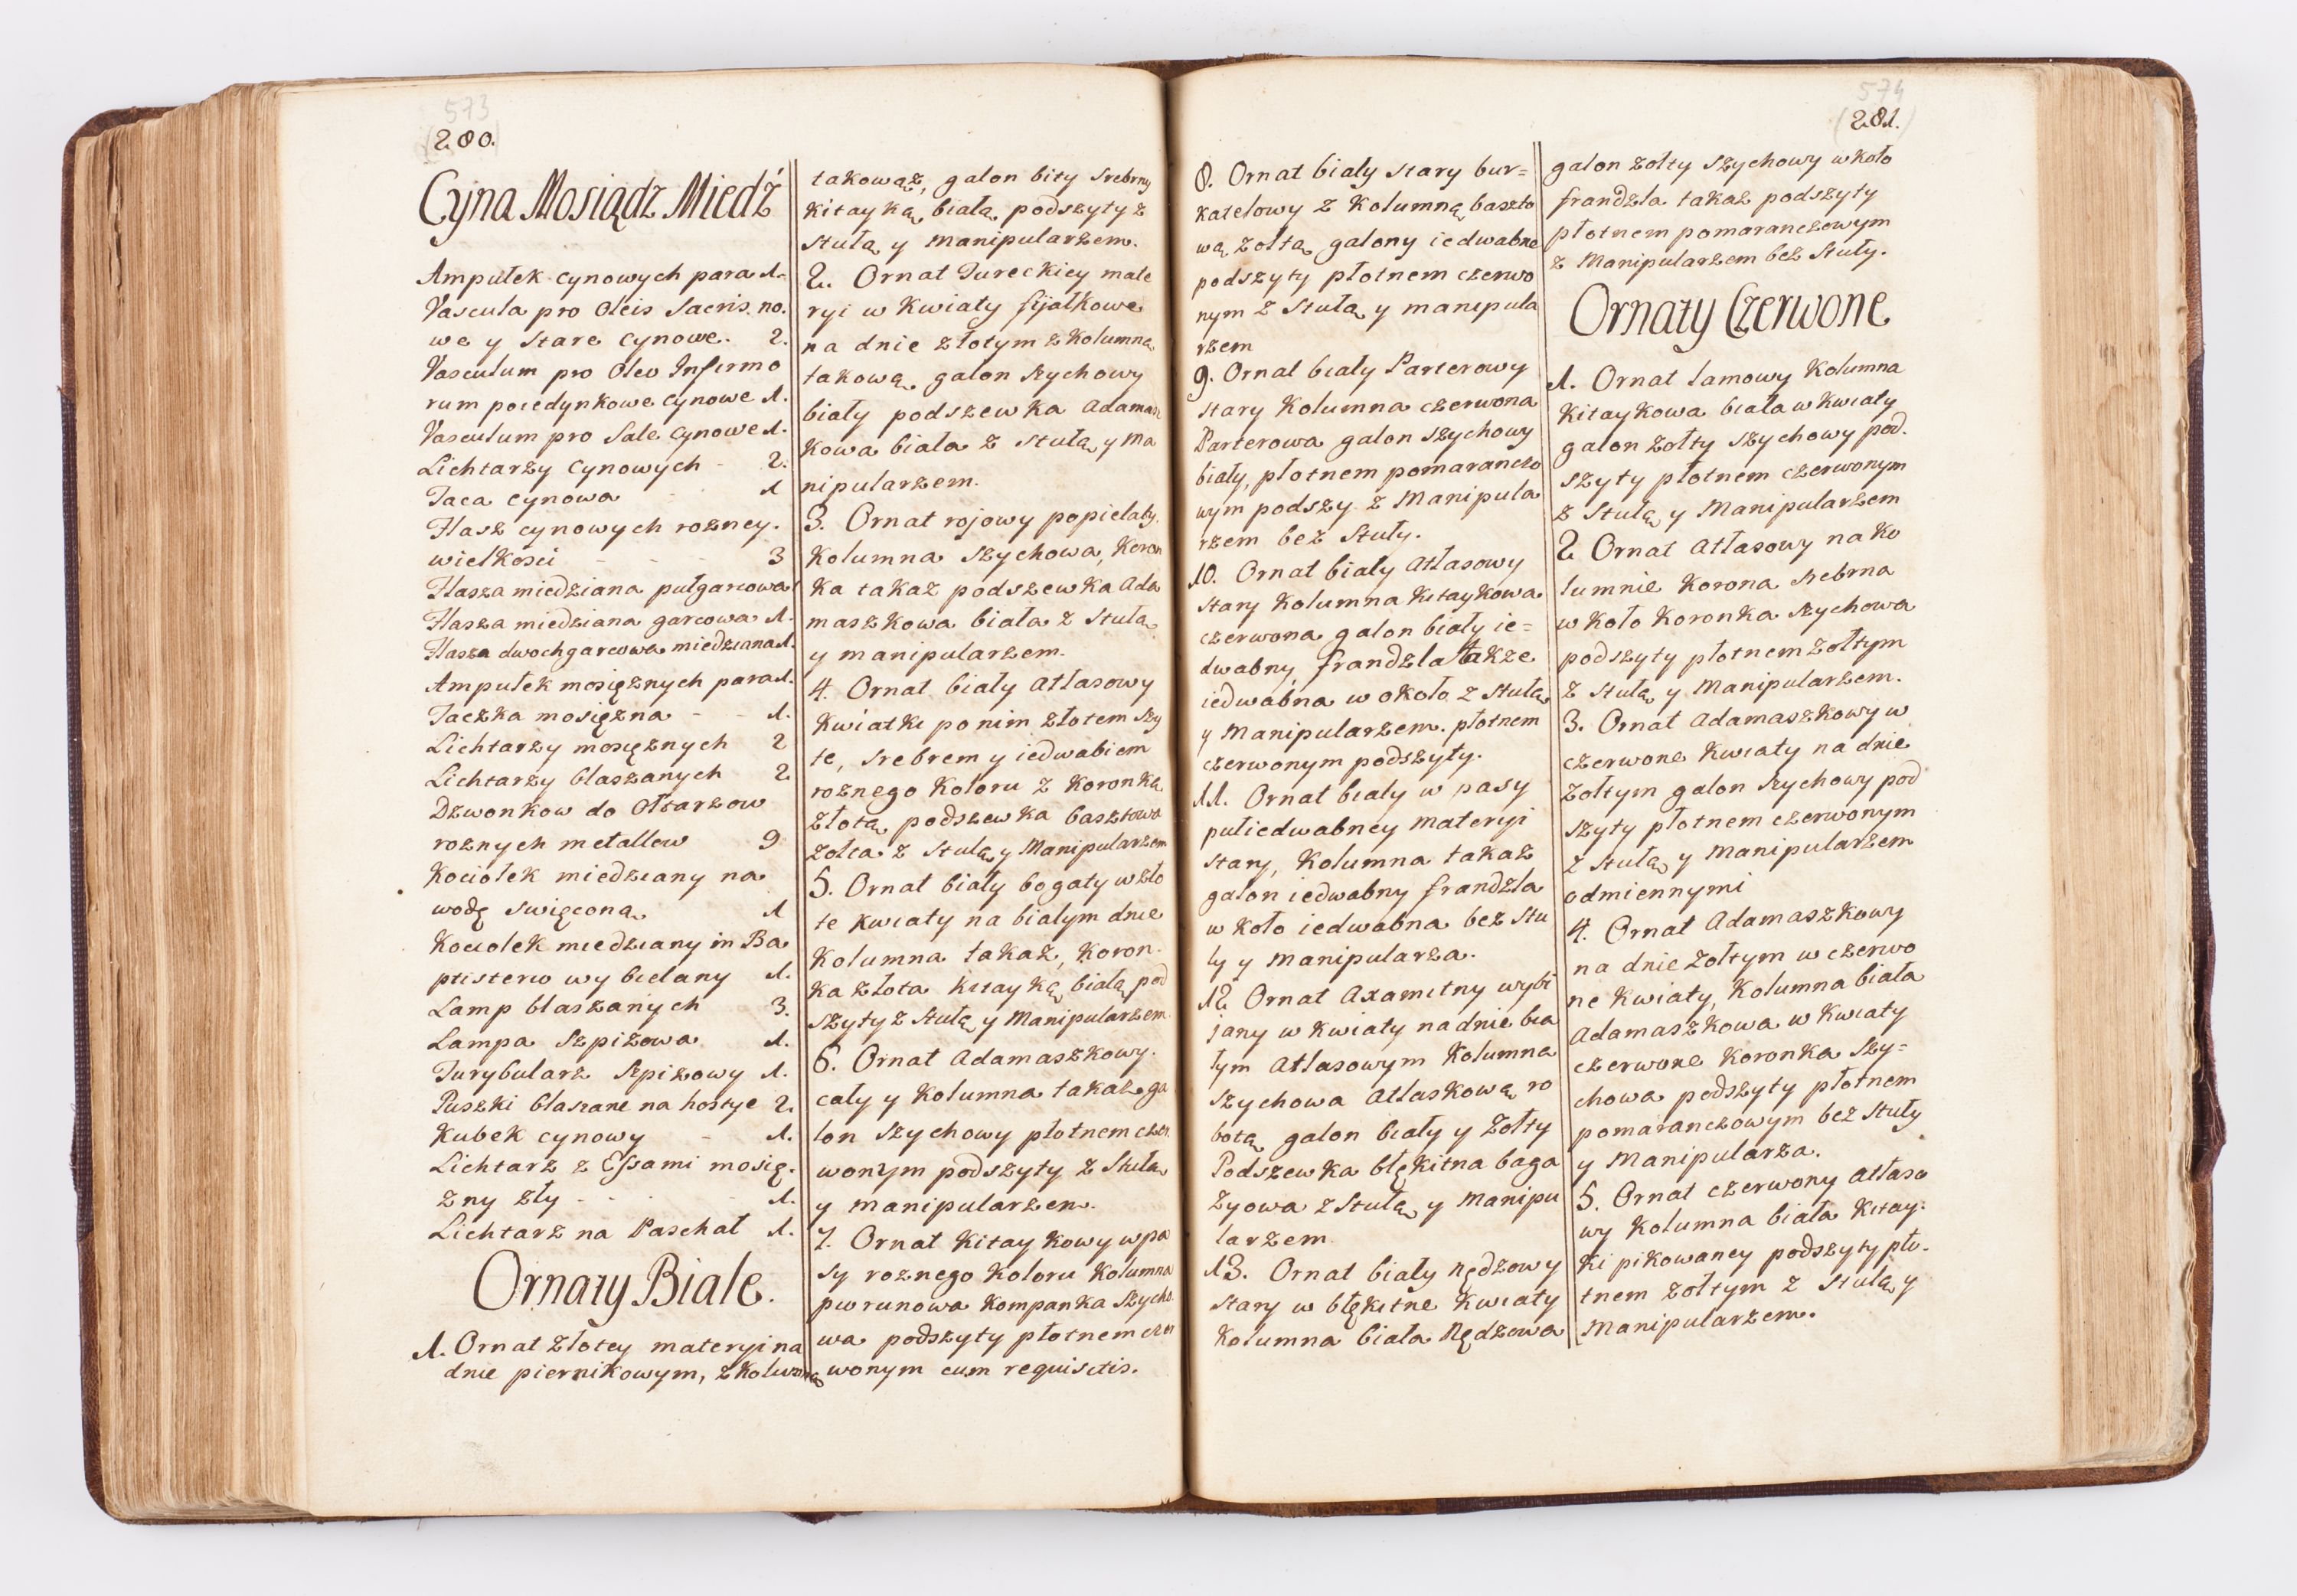 573
(280.)
Cyna Mosiądz Miedź
Ampułek cynowych para 1.
Vascula pro Oleis Sacris no.
we y stare cynowe. 2.
Vasculum pro Oleo Infirmo
rum poiedynkowe cynowe 1.
Vasculum pro Sale cynowe 1.
Lichtarzy cynowych - 2.
Taca cynowa - 1
Flasz cynowych rozney.
wielkosci - - - 3
Flasza miedziana pułgarcowa
Flasza miedziana garcowa 1.
Flasza dwochgarcowa miedziana 1.
Ampułek mosięznych para 1.
Taczka mosięzna - - 1.
Lichtarzy mosięznych 2
Lichtarzy blaszanych 2
Dzwonkow do Ołtarzow
roznych metallow 9
Kociołek miedziany na
wodę swięconą 1
Kociołek miedziany in Ba
ptisterio wy bielany 1.
Lamp blaszanych 3.
Lampa Szpiżowa 1.
Turybularz Szpiżowy 1.
Puszki blaszane na hostye 2.
Kubek cynowy - 1.
Lichtarz z Essami mosię.
zny zły - - - 1.
Lichtarz na Paschał 1.
Ornaty Białe.
1. Ornat złotey materyi na
dnie piernikowym, z kolumną
takowąż, galon bity srebrny
kitayką białą podszyty z
stułą y manipularzem.
2. Ornat Tureckiey mate
ryi w kwiaty fijałkowe
na dnie złotym z kolumną
takową galon szychowy
biały podszewka adamasz
kowa biała z stułą y ma
nipularzem.
3. Ornat rojowy popielaty.
kolumna szychowa, koron
ka takaż podszewka ada
maszkowa biała z stułą
y manipularzem.
4. Ornat biały atłasowy
kwiatki po nim złotem szy
te, srebrem y iedwabiem
roznego koloru z koronką
złotą podszewka basztowa
żołta z stułą y Manipularzem
5. Ornat biały bogaty w zło
te kwiaty na białym dnie
kolumna takaż, koron.
ka złota kitayką białą pod
szyty z stułą y Manipularzem
6. Ornat adamaszkowy.
cały y kolumna takaż ga
lon szychowy płotnem czer.
wonym podszyty z stułą
y manipularzem.
7. Ornat kitaykowy w pa
sy roznego koloru kolumna
piorunowa kompanka szycho.
wa podszyty płotnem czer
wonym cum requisitis.
574
(281.)
8. Ornat biały stary bur=
katelowy z kolumną baszto
wą żołtą galony iedwabne
podszyty płotnem czerwo
nym z stułą y manipula
rzem
9. Ornat biały Parterowy
stary kolumna czerwona
Parterowa galon szychowy
biały, płotnem pomaranczo
wym podszy. z Manipula
rzem bez stuły.
10. Ornat biały atłasowy
stary kolumna kitaykowa
czerwona galon biały ie=
dwabny, frandzla także
iedwabna w około z stułą
y Manipularzem. płotnem
czerwonym podszyty.
11. Ornat biały w pasy
pułiedwabney materyi
stary, kolumna takaż
galon iedwabny frandzla
w koło iedwabna bez stu
ły y manipularza.
12. Ornat axamitny wybi
jany w kwiaty na dnie bia
łym atłasowym kolumna
szychowa atłaskową ro
botą galon biały y żołty
Podszewka błękitna baga
zyowa z stułą y manipu
larzem
13. Ornat biały Rędzowy
stary w błękitne kwiaty
kolumna biała Rędzowa
galon żołty szychowy w koło
frandzla takaż podszyty
płotnem pomaranczowym
z Manipularzem bez stuły.
Ornaty Czerwone
1. Ornat lamowy kolumna
kitaykowa biała w kwiaty
galon żołty szychowy pod.
szyty płotnem czerwonym
z stułą y Manipularzem
2. Ornat atłasowy na ko
lumnie korona srebrna
w koło koronka szychowa
podszyty płotnem żołtym
z stułą y Manipularzem.
3. Ornat adamaszkowy w
czerwone kwiaty na dnie
żołtym galon szychowy pod
szyty płotnem czerwonym
z stułą y manipularzem
odmiennymi
4. Ornat adamaszkowy
na dnie żołtym w czerwo
ne kwiaty, kolumna biała
adamaszkowa w kwiaty
czerwone koronka szy=
chowa podszyty płotnem
pomaranczowym bez stuły
y Manipularza.
5. Ornat czerwony atłaso
wy kolumna biała kitay.
ki pikowaney podszyty pło.
tnem żołtym z stułą y
Manipularzem.